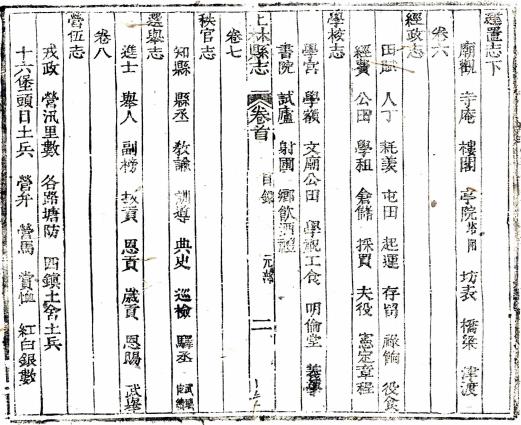 建置志下
廟觀 寺庵 樓閣 亭院 坊表 橋梁 津渡
卷六
經政志
田賦 人丁 耗羨 屯田 起運 存留 祿餉 役食
經費 公田 學租 倉儲 採買 夫役 憲定章程
學校志
學宮 學額 文廟公田 學租工食 明倫堂 義學
書院 試廬 射圃 鄉飲酒禮
上林縣志 卷首 目錄 二
卷七
秩官志
知縣 縣丞 教諭 訓導 典史 巡檢 驛丞
選舉志
進士 舉人 副榜 拔貢 恩貢 歲貢 恩賜 武舉
卷八
營伍志
戎政 營汛里數 各路塘防 四鎮土舍土兵
十六堡頭目土兵 營弁 營馬 賞恤 紅白銀數